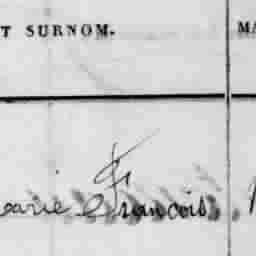 T SURNOM. MA
earie François